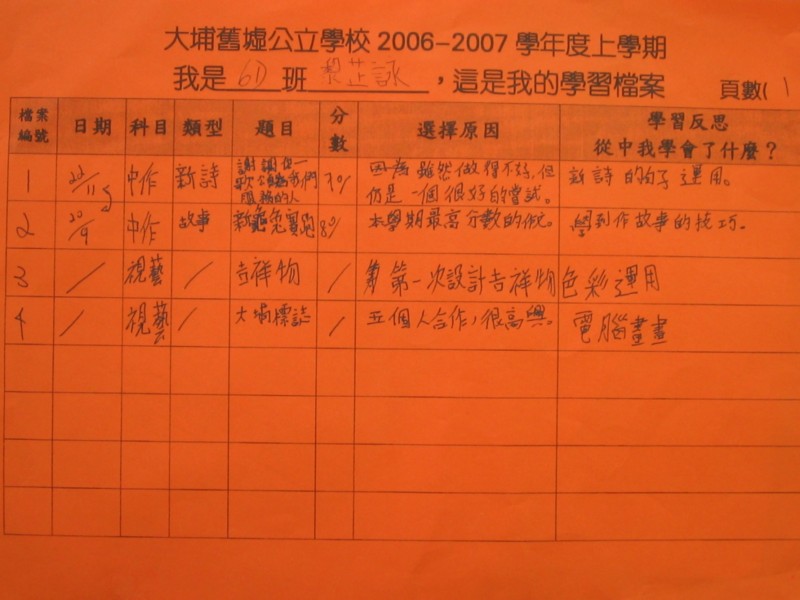 大埔舊墟公立學校 2006-2007 學年度上學期
我是 6D 班 黎芷詠 ，這是我的學習檔案 頁數( 1
檔案編號 日期 科目 類型 題目 分數 選擇原因 學習反思
從中我學會了什麼？
1 22/11 中作 新詩 謝謝你一 因為雖然做得不好,但 新詩的句子運用。
服務的人 仍是一個很好的嘗試。
2 20/9 中作 故事 新龜兔賽跑 80 本學期最高分數的作文。 學到作故事的技巧。
3 / 視藝 / 吉祥物 / 第一次設計吉祥物 色彩運用
4 / 視藝 / 大埔標誌 / 五個人合作,很高興。 電腦畫畫